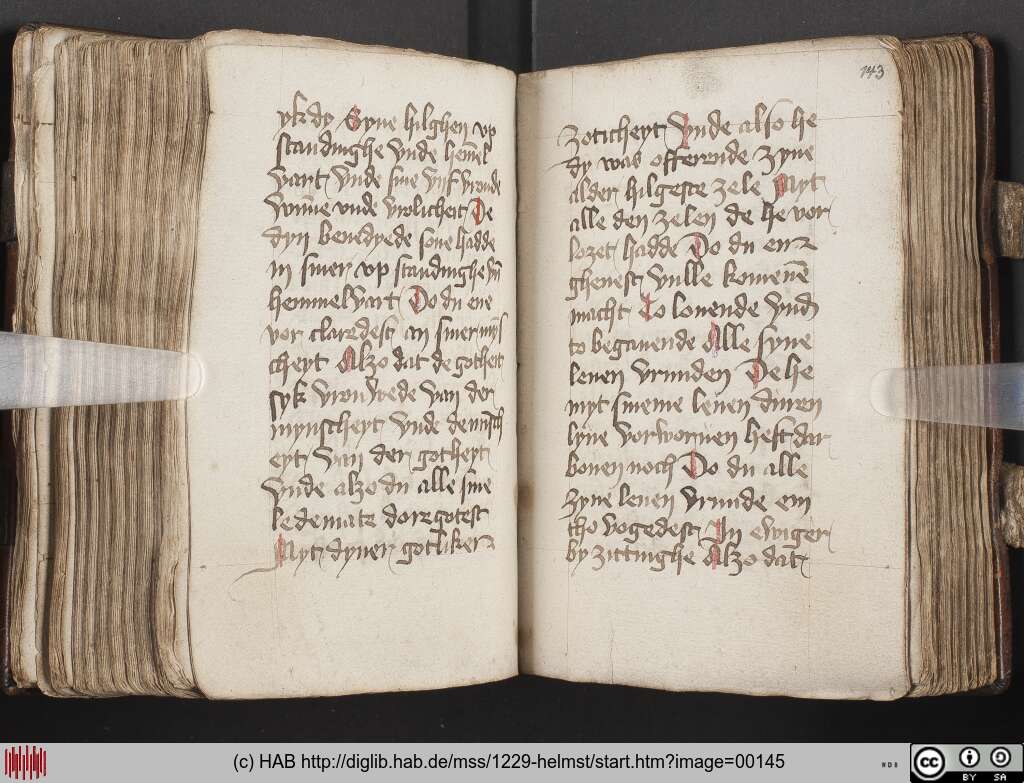 yk dy Syne hilghen vp
standinghe Vnde hem̄el
vart Vnde sine vroude
wu̅ne vnde vrolicheit De
dyn benedyede sone hadde
in siner vp standinghe vn̄
hemmel vart Do du ene
vor claredest an siner
cheyt Alzo dat de gotheit
syk vrouwede van der
mynscheyt Vnde de
eyt van der gotheyt
Vnde alzo du alle sine
ledematz dorzgotest
Myt dyner gotliker
143
zoticheyt Vnde also he
dy was offerende zyne
alder hilgeste zele Myt
alle den zelen de he vor
lozet hadde Do du en
ghenest Vulle komenē
macht To lonende Vnd
to begauende Alle syne
leuen vrunden De he
myt sineme leuen duren
lyue Vorworuen heft dar
bouen noch Do du alle
zyne leuen Vrunde em
tho vogedest In ewiger
by zittinghe Alzo dat
(c) HAB http://diglib.hab.de/mss/1229-helmst/start.htm?image=00145
WDB
cc BY SA